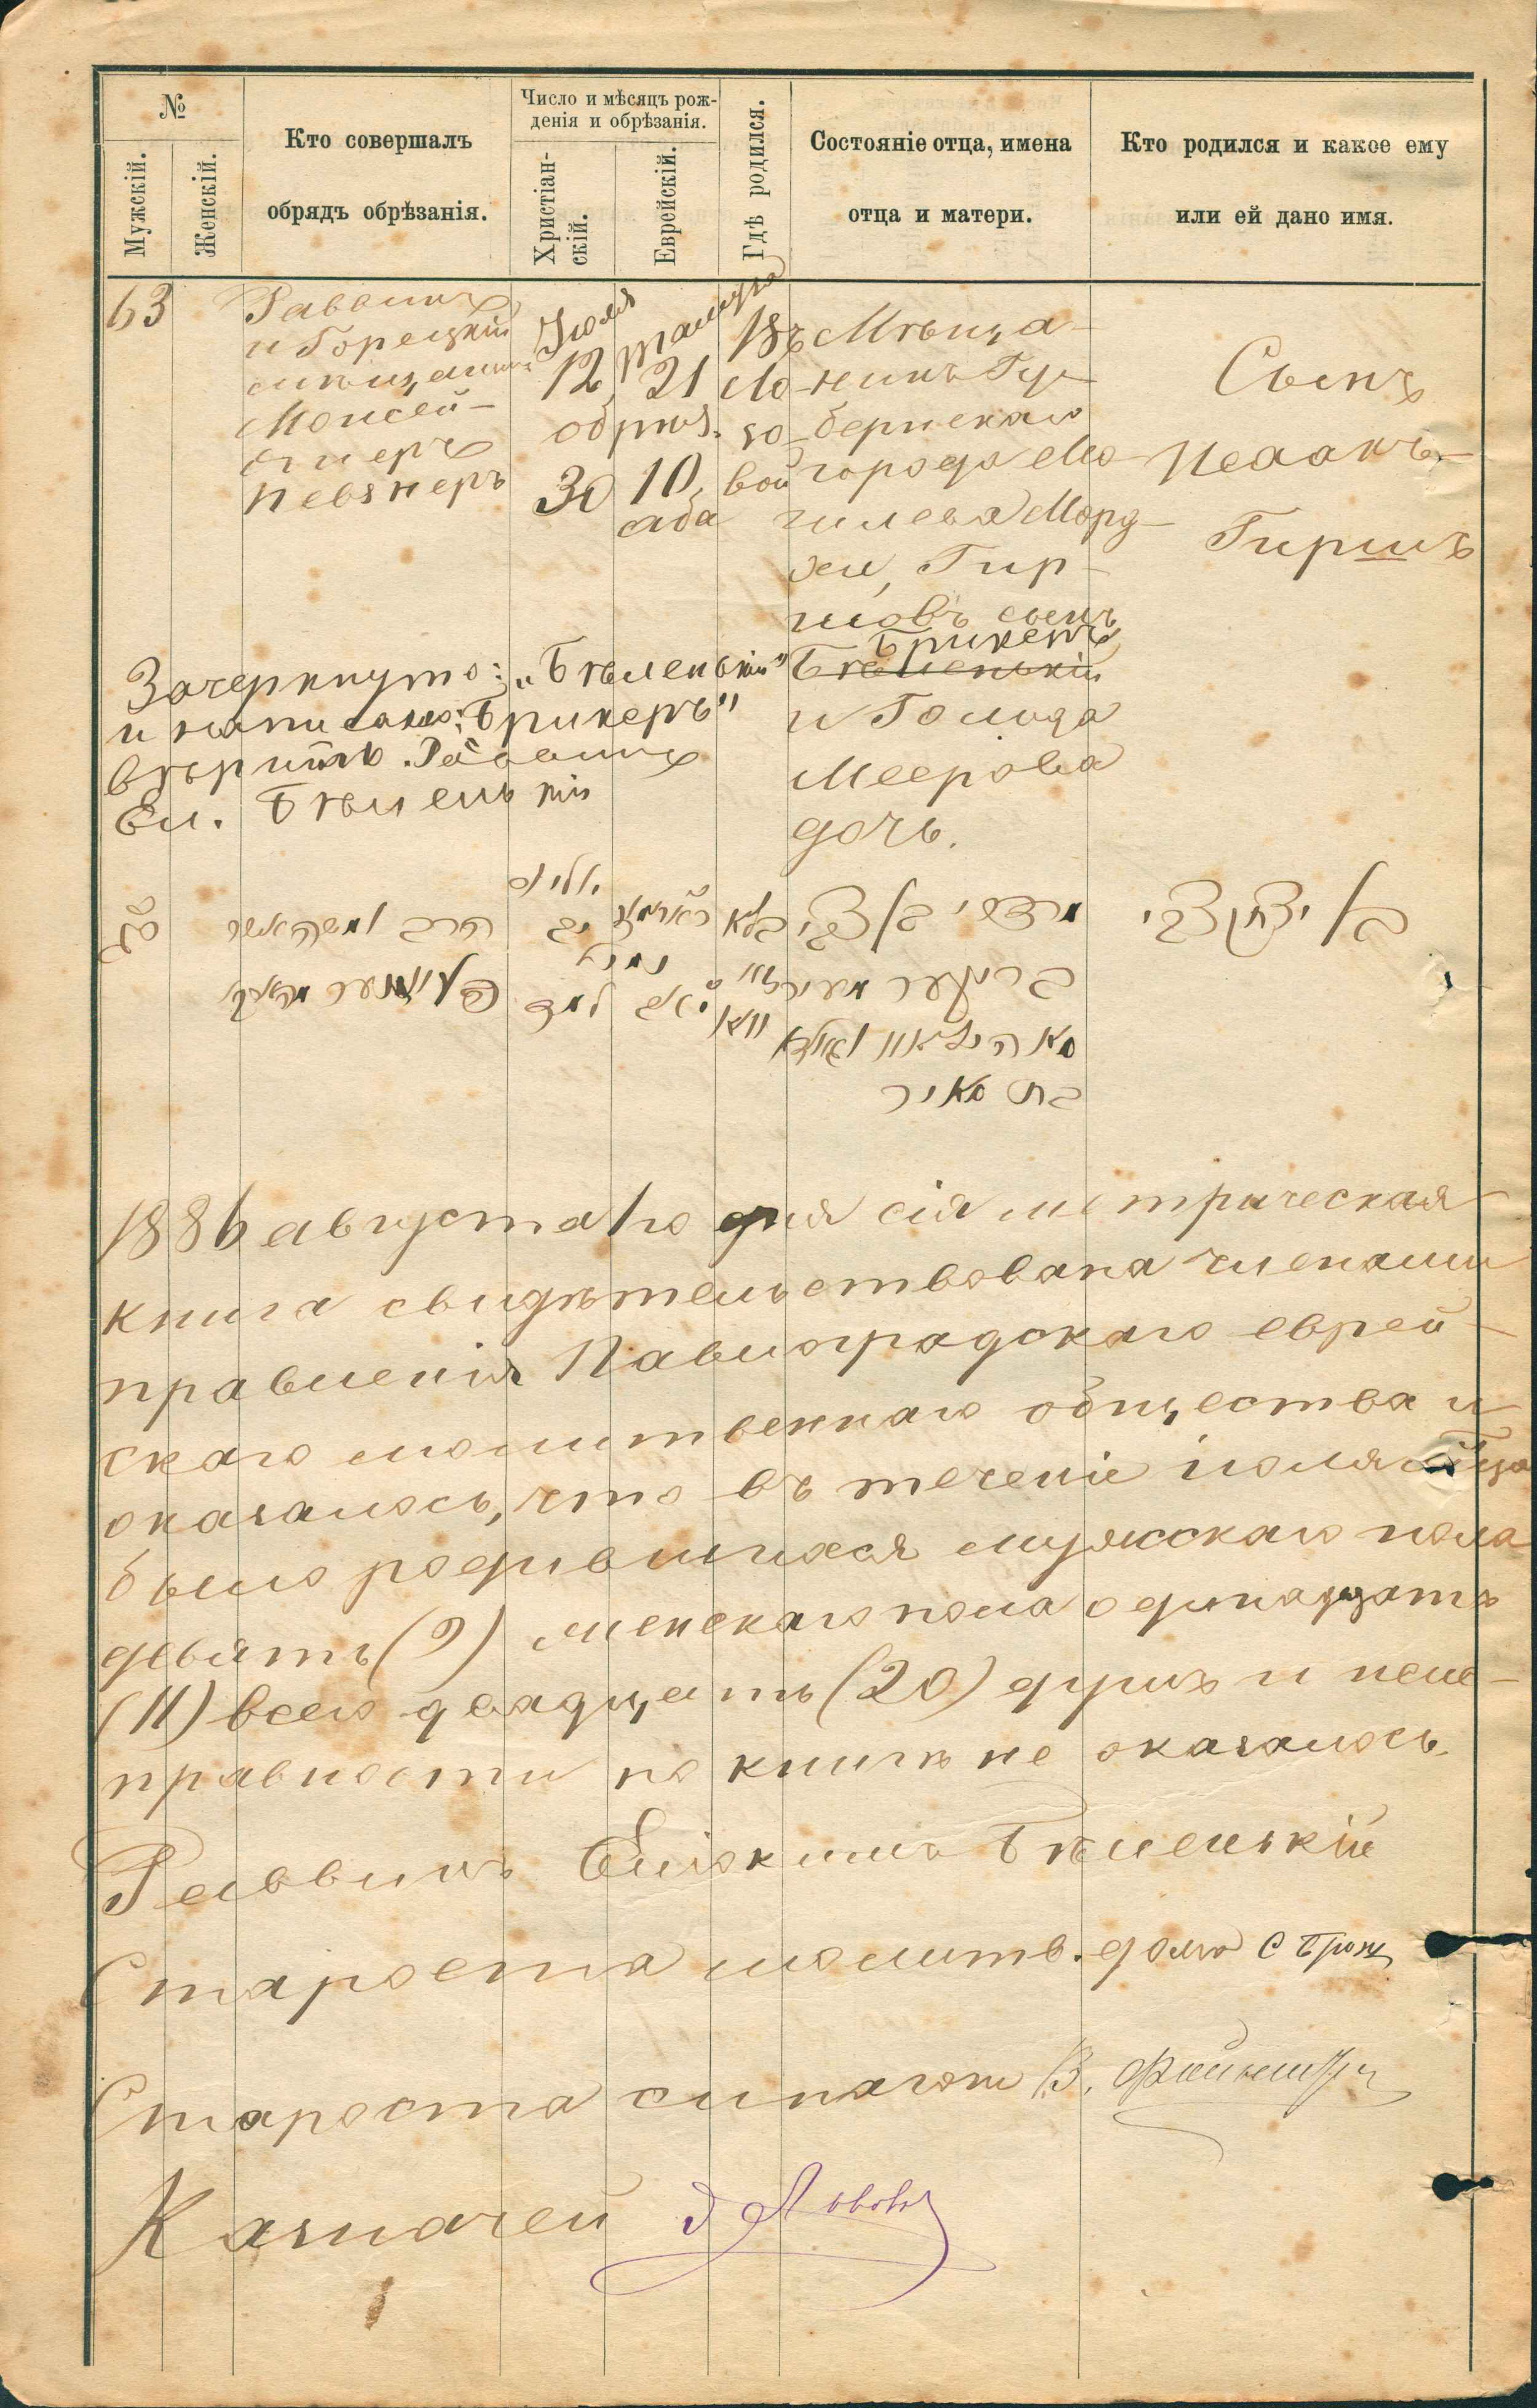 №
Мужскій.
Женскій.
Кто совершалъ
обрядъ обрѣзанія.
Число и мѣсяцъ рож-
денія и обрѣзанія.
Христіан-
скій.
Еврейскій.
Гдѣ родился.
Состояніе отца, имена
отца и матери.
Кто родился и какое ему
или ей дано имя.
63
Раввинъ
и Горецкій
мѣщанинъ
Моисей-
Певзнеръ
Іюля
12
обрѣз.
30
Тамуза
21
10
аба
Въ
Ло-
зо-
вой
Мѣща-
нинъ Гу-
бернскаго
города Мо-
гилева Морд-
хи, Гир-
шовъ сынъ
Брикеръ
Бѣленькій
и Голида
Меерова
дочь.
Сынъ
Исаакъ-
Гиршъ
Зачеркнуто: „Бѣленькій"
и написано: „Брикеръ"
вѣрить. Раввинъ
Ел. Бѣленькій
הרב
יולי
בן יצחק צבי
מרדכי בן צבי
בריקער
בת מאיר
1886 августа 1го дня сія метрическая
книга свидѣтельствована членами
правленія Павлоградскаго еврей-
скаго молитвеннаго общества и
оказалось, что въ теченіе іюля м-ца
было родившихся мужскаго пола
девять (9) женскаго пола одинадцать
(11) всего двадцать (20) душъ и неис-
правности по книгѣ не оказалось.
Раввинъ Еліокимъ Бѣленькій
Староста молитв. дома С
Староста синагоги В.
Казначей